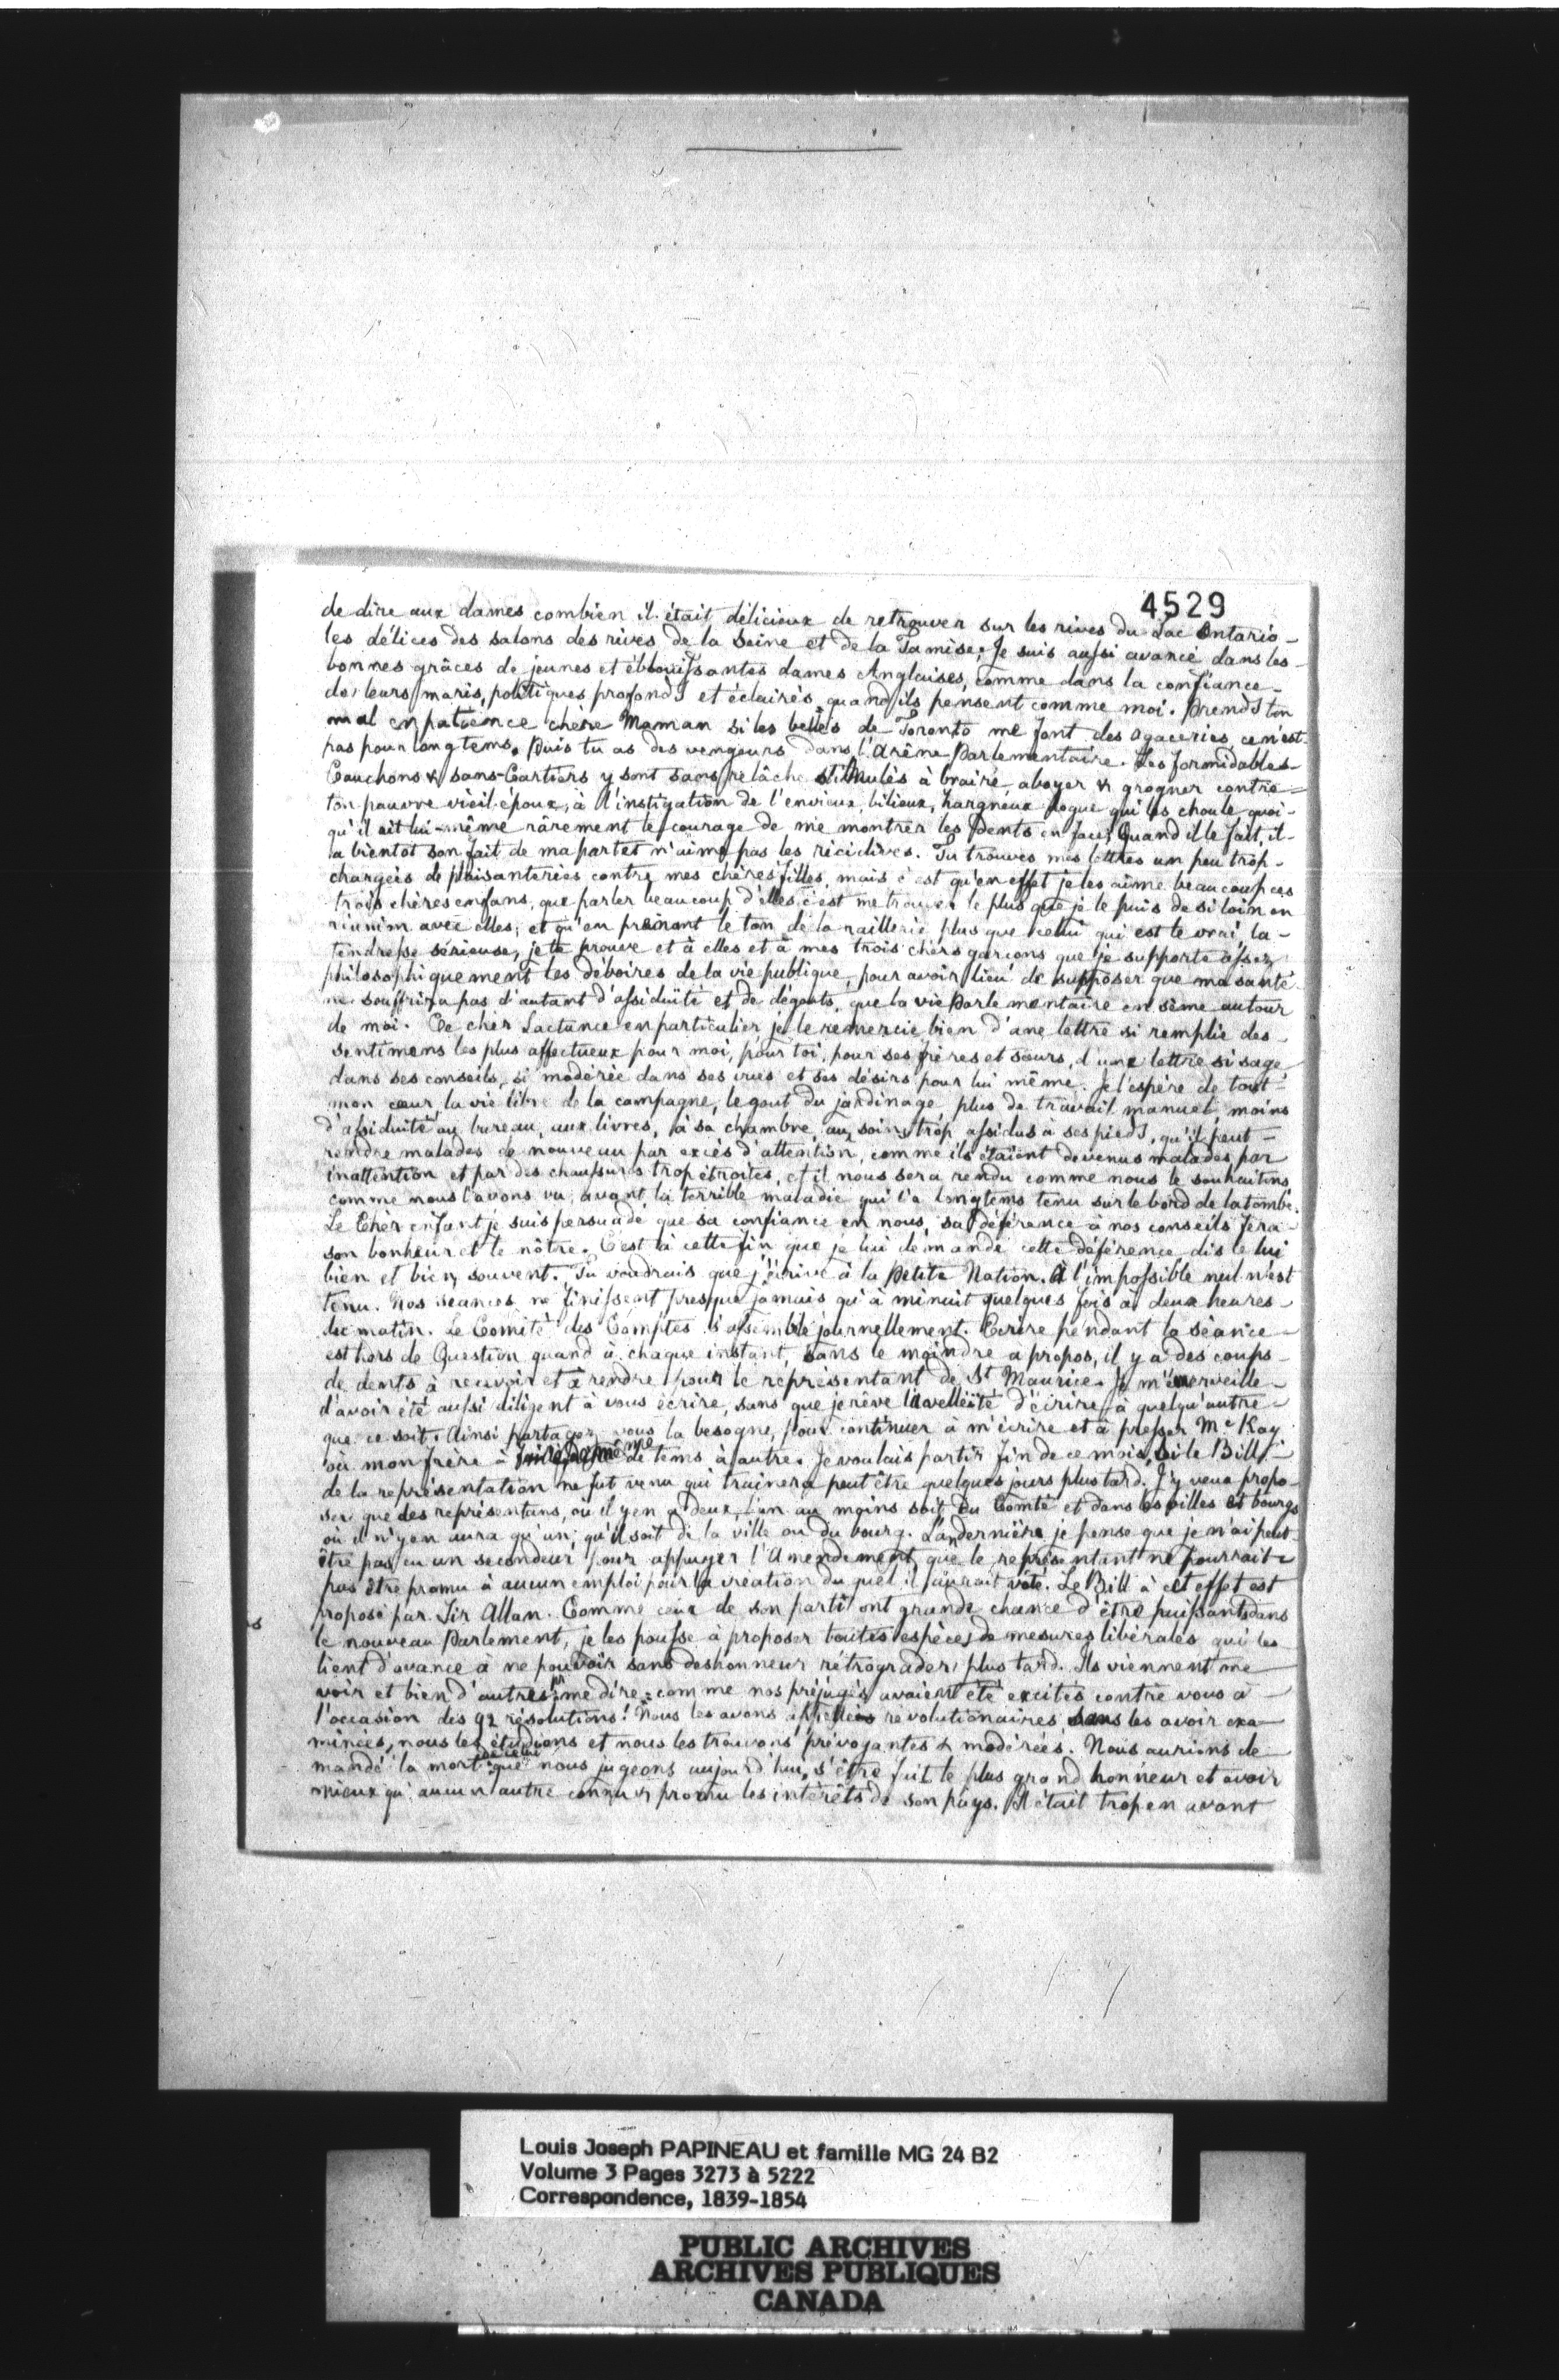 4529
de dire aux dames combien il était délicieux de retrouver sur les rives du Lac Ontario -
les délices des salons des rives de la Seine et de la Tamise. Je suis aussi avancé dans les -
bonnes grâces de jeunes et éblouissantes dames Anglaises, comme dans la confiance -
de leurs maris, politiques profonds et éclairés quand ils pensent comme moi. Prends ton
mal en patience chère Maman si les belles de Toronto me font des agaceries ce n'est
pas pour longtems. Puis tu as des vengeurs dans l'Arêne Parlementaire. Les formidables -
Cauchons & sans-Cartiers y sont sans relâche stimulés à braire, aboyer & grogner contre =
ton pauvre vieil époux, à l'instigation de l'envieux, bilieux, hargneux dogue qui les choule quoi -
qu'il ait lui-même rârement le courage de me montrer les dents en face, Quand il le fait, il -
a bientot son fait de ma part et n'aime pas les récidives. Tu trouves mes lettres un peu trop -
chargées de plaisanteries contre mes chères filles, mais c'est qu'en effet je les aime beaucoup ces
trois chères enfans, que parler beaucoup d'elles, c'est me trouver le plus que je le puis de si loin en
réunion avec elles; et qu'en prenant le ton de la raillerie plus que celui qui est le vrai, la -
tendresse sérieuse, je te prouve et à elles et à mes trois chers garçons que je supporte assez
philosophiquement les déboires de la vie publique, pour avoir lieu de supposer que ma santé
ne souffrira pas d'autant d'assiduité et de dégouts, que la vie Parlementaire en sème autour
de moi. Ce cher Lactance en particulier, je le remercie bien d'une lettre si remplie des -
sentimens les plus affectueux pour moi, pour toi, pour ses frères et sœurs, d'une lettre si sage
dans ses conseils, si modérée dans ses vues et ses désirs pour lui même. Je l'espère de tout -
mon cœur la vie libre de la campagne, le gout du jardinage, plus de travail manuel, moins
d'assiduité au bureau, aux livres, à sa chambre, aux soins trop assidus à ses pieds, qu'il peut -
rendre malades de nouveau par excès d'attention, comme ils étaient devenus malades par
inattention et par des chaussures trop étroites, et il nous sera rendu comme nous le souhaitons
comme nous l'avons vu, avant la terrible maladie qui l'a longtems tenu sur le bord de la tombe.
Le Cher enfant je suis persuadé que sa confiance en nous, sa déférence à nos conseils fera -
son bonheur et le nôtre. C'est à cette fin que je lui demande cette déférence dis le lui
bien et bien souvent. Tu voudrais que j'écrive à la Petite Nation. À l'impossible nul n'est
tenu. Nos séances ne finissent presque jamais qu'à minuit quelques fois à deux heures -
du matin. Le Comité des Comptes s'assemble journellement. Ecrire pendant la séance -
est hors de Question quand à chaque instant, sans le moindre apropos, il y a des coups -
de dents à recevoir et à rendre pour le représentant de St Maurice. Je m'émerveille -
d'avoir été aussi diligent à vous écrire, sans que je rêve la velléïté d'écrire à quelqu'autre -
que ce soit. Ainsi partagez vous la besogne, pour continuer à m'écrire et à presser Mc Kay
ou mon frère à de tems à autre. Je voulais partir fin de ce mois, si le Bill -
de la représentation ne fut venu qui trainera peut être quelques jours plus tard. J'y veux propo-
ser que des représentans, où il y en a deux, l'un au moins soit du Comté et dans les villes et bourgs
où il n'y en aura qu'un; qu'il soit de la ville ou du bourg. L'an dernière je pense que je n'ai peut
être pas eu un secondeur pour appuyer l'Amendement que le représentant ne pourrait -
pas être promu à aucun emploi pour la création du quel il aurait voté. Le Bill à cet effet est
proposé par Sir Allan. Comme ceux de son parti ont grande chance d'être puissants dans
le nouveau Parlement, je les pousse à proposer toutes espèces de mesures libérales qui les
lient d'avance à ne pouvoir sans deshonneur rétrograder plus tard. Ils viennent me -
voir et bien d'autres pr me dire: comme nos préjugés avaient été excités contre vous à -
l'occasion des 92 résolutions! Nous les avons appellées révolutionaires sans les avoir exa-
minées, nous les étudions et nous les trouvons prévoyantes & modérées. Nous aurions de -
mandé la mort de celui que nous jugeons aujourd'hui, s'être fait le plus grand honneur et avoir
mieux qu'aucun autre connu & promu les intérêts de son pays. Il était trop en avant
Louis Joseph PAPINEAU et famille MG 24 B2
Volume 3 Pages 3273 à 5222
Correspondence, 1839-1854
PUBLIC ARCHIVES
ARCHIVES PUBLIQUES
CANADA